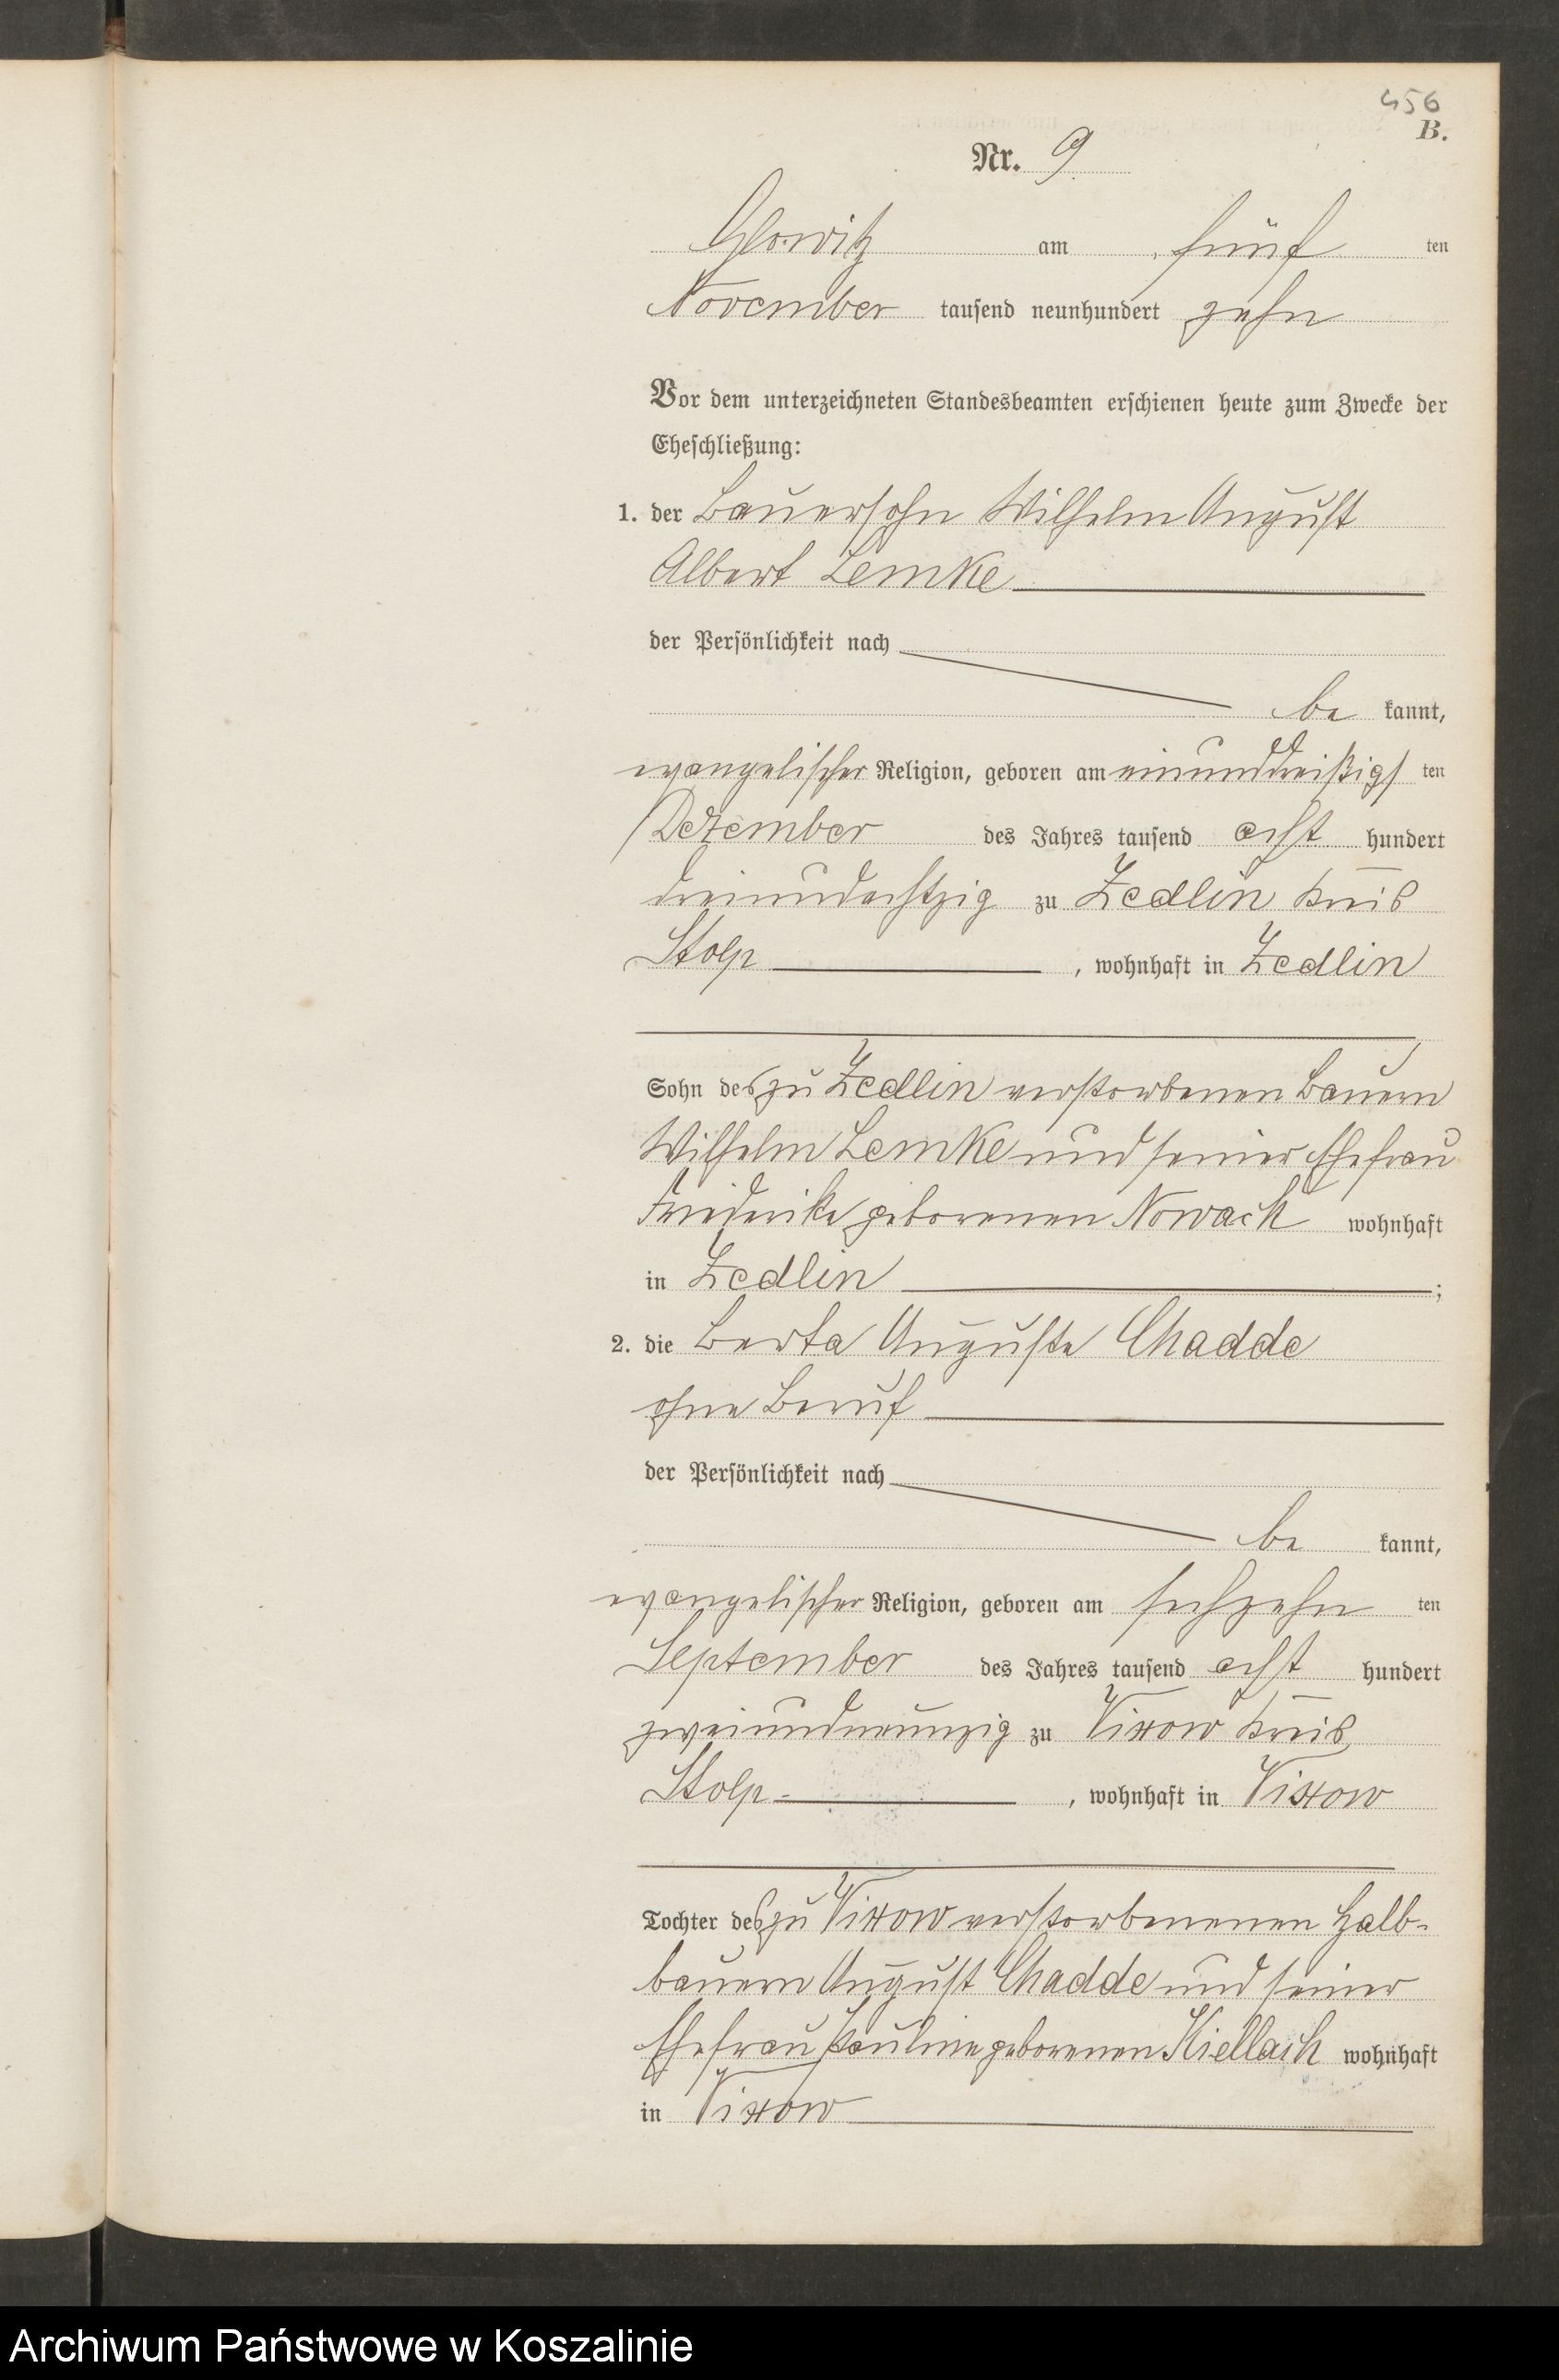 456
B.
Nr. 9
Glowitz am fünf ten
November tausend neunhundert zehn
Vor dem unterzeichneten Standesbeamten erschienen heute zum Zwecke der
Eheschließung:
1. der Bauersohn Wilhelm August
Albert Lemke
der Persönlichkeit nach
be kannt,
evangelischer Religion, geboren am einunddreißigs ten
Dezember des Jahres tausend acht hundert
dreiundachtzig zu Zedlin Kreis
Stolp, wohnhaft in Zedlin
Sohn des zu Zedlin verstorbenen Bauern
Wilhelm Lemke und seiner Ehefrau
Friederike geborenen Nowack wohnhaft
in Zedlin;
2. die Berta Auguste Chadde
ohne Beruf
der Persönlichkeit nach
be kannt,
evangelischer Religion, geboren am sechzehn ten
September des Jahres tausend acht hundert
zweiundneunzig zu Vixow Kreis
Stolp, wohnhaft in Vixow
Tochter des zu Vixow verstorbenenen Halb-
bauern August Chadde und seiner
Ehefrau Pauline geborenen Kiellach wohnhaft
in Vixow
Archiwum Państwowe w Koszalinie